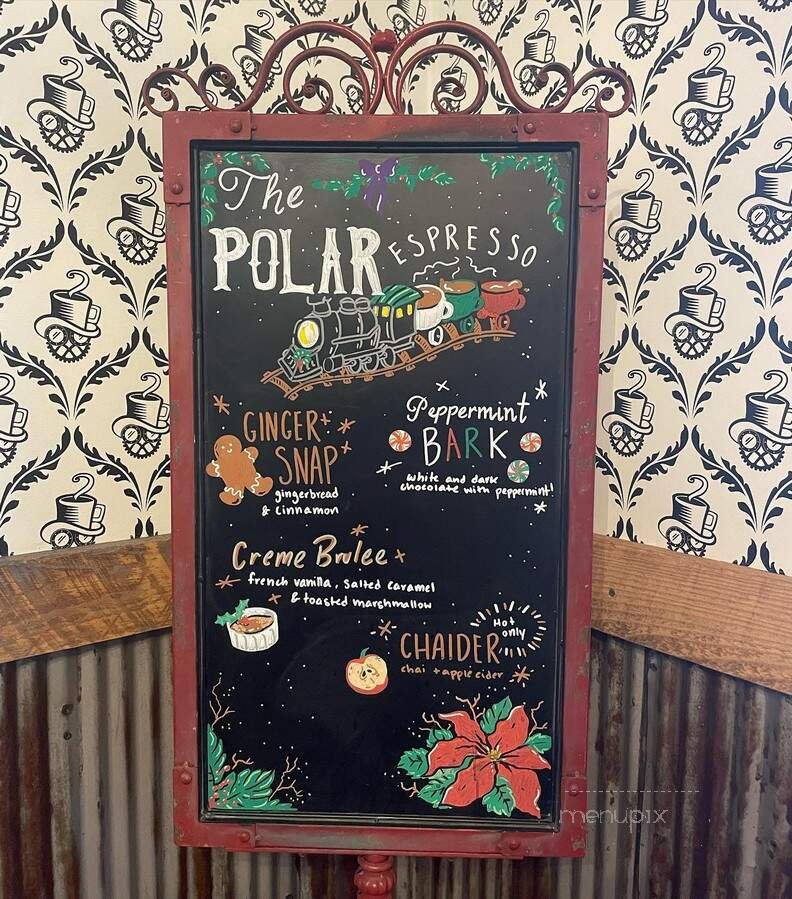 The
POLAR ESPRESSO
GINGER
SNAP
gingerbread
& cinnamon
Peppermint
BARK
white and dark
chocolate with peppermint!
Creme Brulee
french vanilla, salted caramel
& toasted marshmallow
Hot
only
CHAIDER
chai + apple cider
menupix